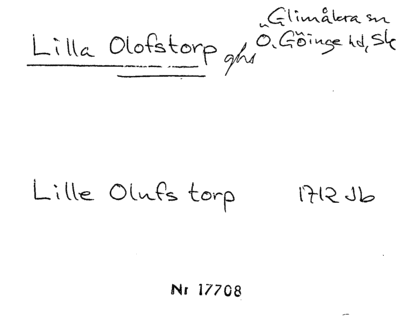 Glimåkra sn
Lilla Olofstorp ghs Ö. Göinge hd, Sk
Lille Olufs torp 1712 Jb
Nr 17708